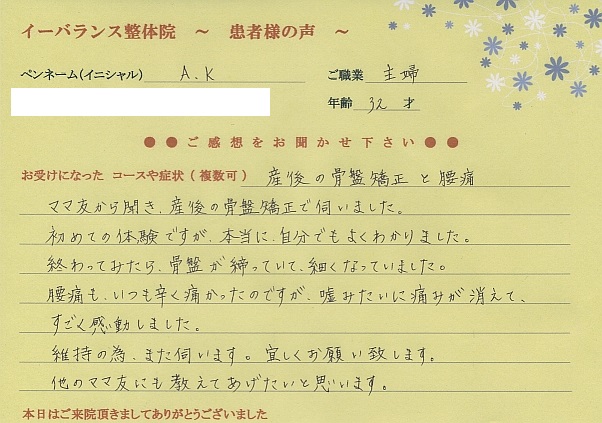 イーバランス整体院 ～ 患者様の声 ～
ペンネーム(イニシャル) A.K ご職業 主婦
年齢 32 才
●●ご感想をお聞かせ下さい●●
お受けになった コースや症状（複数可） 産後の骨盤矯正と腰痛
ママ友から聞き、産後の骨盤矯正で伺いました。
初めての体験ですが、本当に、自分でもよくわかりました。
終わってみたら、骨盤が締っていて、細くなっていました。
腰痛も、いつも辛く痛かったのですが、嘘みたいに痛みが消えて、
すごく感動しました。
維持の為、また伺います。宜しくお願い致します。
他のママ友にも教えてあげたいと思います。
本日はご来院頂きましてありがとうございました